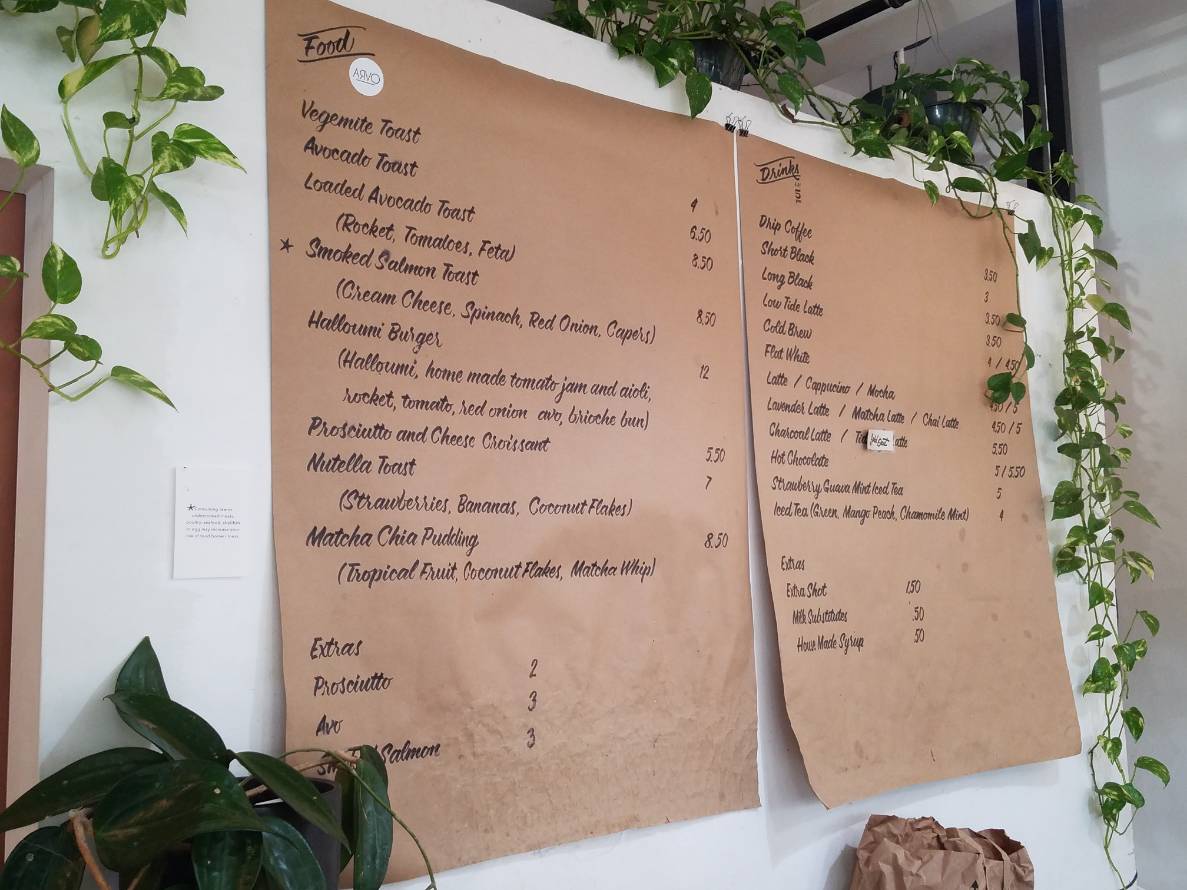 Food
ARVO
Vegemite Toast 4
Avocado Toast 6.50
Loaded Avocado Toast 8.50
(Rocket, Tomatoes, Feta)
* Smoked Salmon Toast 8.50
(Cream Cheese, Spinach, Red Onion, Capers)
Halloumi Burger 12
(Halloumi, home made tomato jam and aioli,
rocket, tomato, red onion avo, brioche bun)
Prosciutto and Cheese Croissant 5.50
Nutella Toast 7
(Strawberries, Bananas, Coconut Flakes)
Matcha Chia Pudding 8.50
(Tropical Fruit, Coconut Flakes, Matcha Whip)
Extras
Prosciutto 2
Avo 3
Salmon 3
Drinks
Drip Coffee 3.50
Short Black 3
Long Black 3.50
Low Tide Latte 3.50
Cold Brew 4 / 4.50
Flat White
Latte / Cappucino / Mocha 4.50 / 5
Lavender Latte / Matcha Latte / Chai Latte 4.50 / 5
Charcoal Latte / 5.50
Hot Chocolate 5 / 5.50
Strawberry Guava Mint Iced Tea 5
Iced Tea (Green, Mango Peach, Chamomile Mint) 4
Extras
Extra Shot 1.50
Milk Substitutes .50
House Made Syrup .50
*Consuming raw or
undercooked meats,
poultry, seafood, shellfish
or egg may increase your
risk of food borne illness